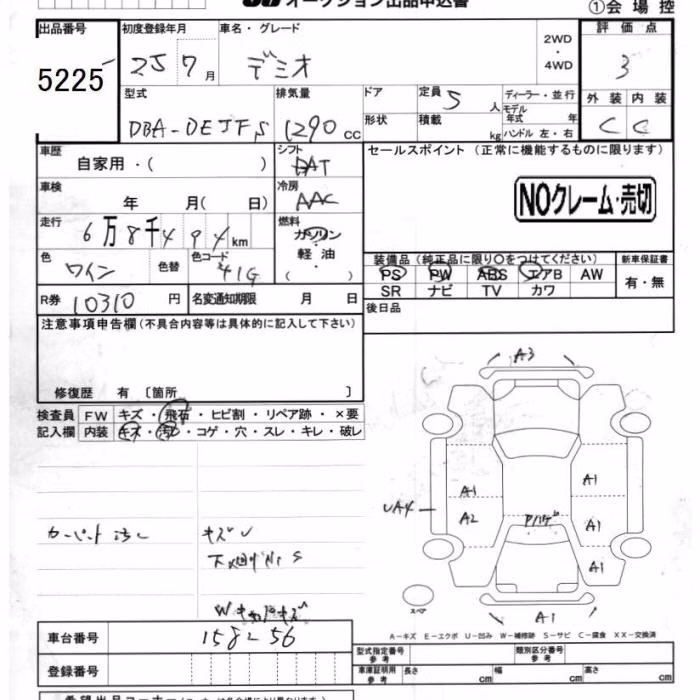 オークション出品申込書
①会場控
出品番号 初度登録年月 車名・グレード 評価点
5225 25 7月 デミオ 2WD・4WD 3
型式 排気量 ドア 定員 5人 ディーラー・並行 外装 内装
DBA-DEJFS 1290cc 形状 積載 kg モデル年式 年 ハンドル 左・右 C C
車歴 自家用・( ) シフト セールスポイント (正常に機能するものに限ります)
車検 年 月( 日) 冷房 AAC
NOクレーム・売切
走行 6万8千494km 燃料 ガソリン
色 ワイン 色替 色コード 41G 軽油・( )
装備品 (純正品に限り○をつけてください) 新車保証書
PS PW ABS エアB AW 有・無
SR ナビ TV カワ
R券 10310円 名変通知期限 月 日 後日品
注意事項申告欄 (不具合内容等は具体的に記入して下さい)
修復歴 有 〔箇所 〕
検査員 FW キズ・飛石・ヒビ割・リペア跡・×要
記入欄 内装 キズ・汚れ・コゲ・穴・スレ・キレ・破レ
A3
A1 A1
UA4 A2 A1
A1
スペア
A1
カーペット キズ
S
W キズ
A-キズ E-エクボ U-凹み W-補修跡 S-サビ C-腐食 XX-交換済
車台番号 158256
登録番号
型式指定番号 参考 類別区分番号 参考
車庫証明用 参考 長さ cm 幅 cm 高さ cm
希望出品コーナー